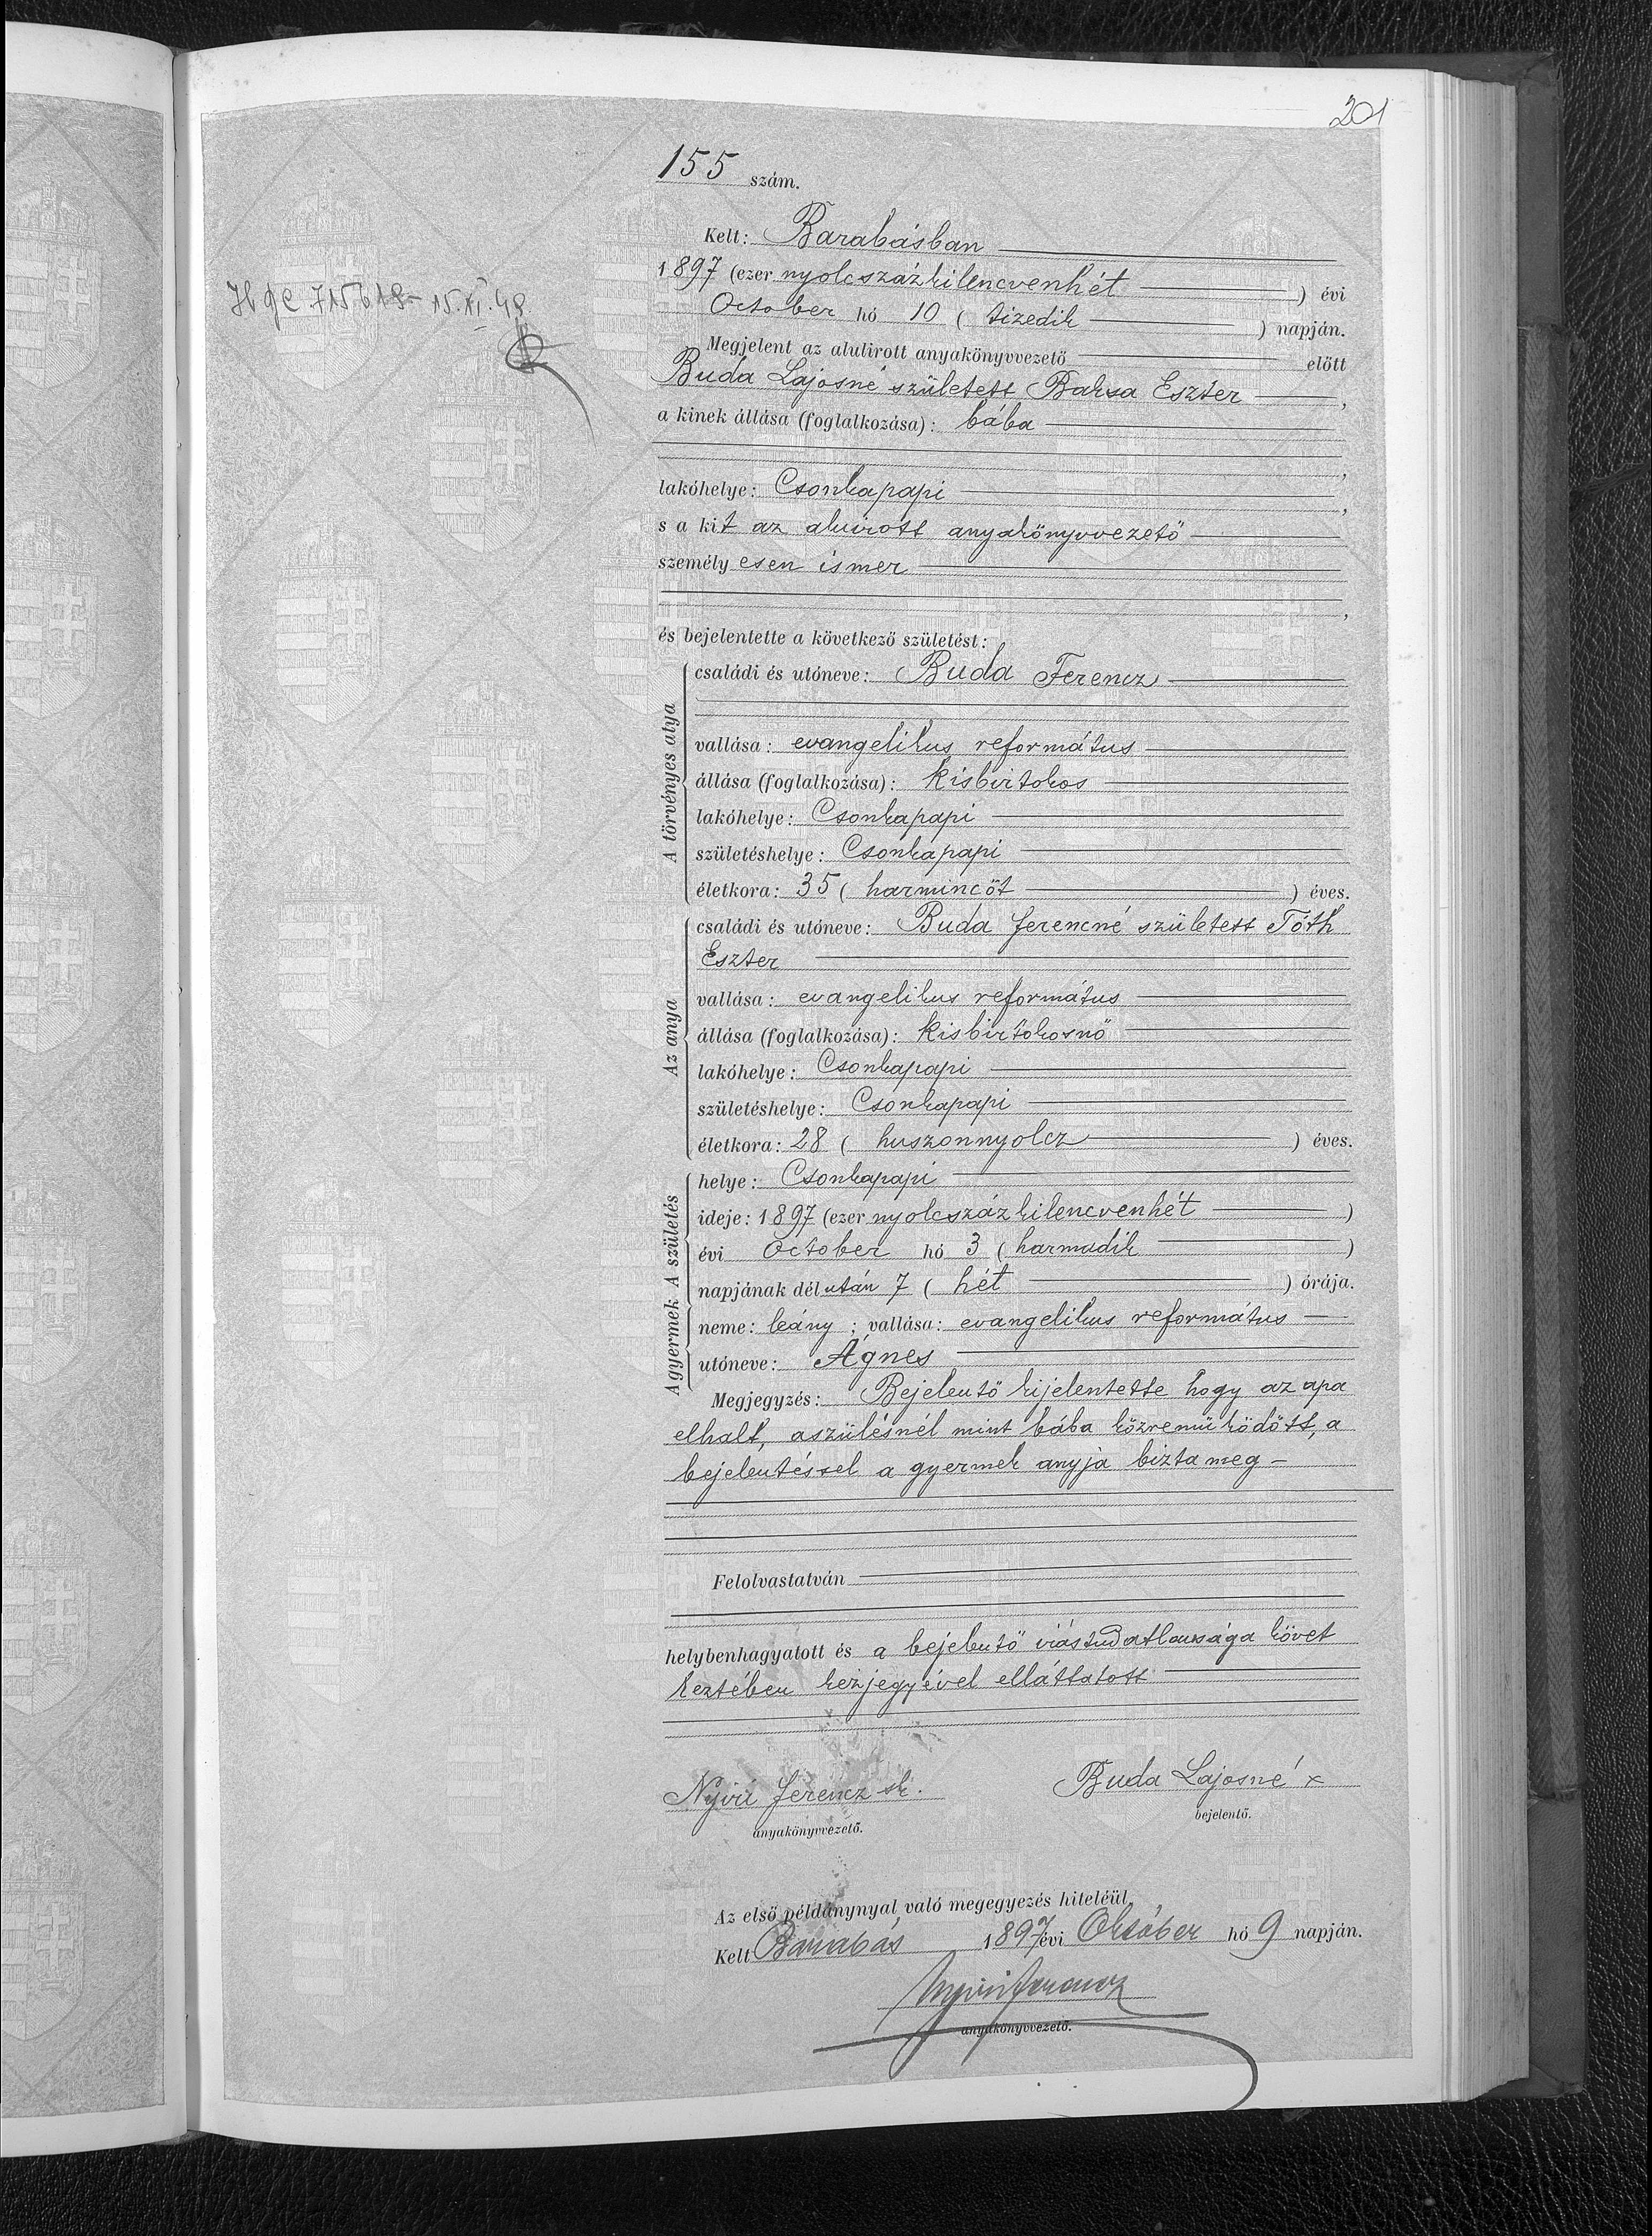 201
155 szám.
Kelt: Barabásban
1897 (ezer nyolcszázkilencvenhét ) évi
October hó 10 ( tizedik ) napján.
Megjelent az alulirott anyakönyvvezető előtt
Buda Lajosné született Baksa Eszter ,
a kinek állása (foglalkozása): bába
,
lakóhelye: Csonkapapi ,
s a kit az alulirott anyakönyvvezető
személyesen ismer
,
és bejelentette a következő születést:
A törvényes atya
családi és utóneve: Buda Ferencz
vallása: evangelikus református
állása (foglalkozása): kisbirtokos
lakóhelye: Csonkapapi
születéshelye: Csonkapapi
életkora: 35 ( harmincöt ) éves.
Az anya
családi és utóneve: Buda Ferencné született Tóth
Eszter
vallása: evangelikus református
állása (foglalkozása): kisbirtokosnő
lakóhelye: Csonkapapi
születéshelye: Csonkapapi
életkora: 28 ( huszonnyolcz ) éves.
A születés
helye: Csonkapapi
ideje: 1897 (ezer nyolcszázkilencvenhét )
évi October hó 3 ( harmadik )
napjának délután 7 ( hét ) órája.
A gyermek
neme: leány ; vallása: evangelikus református
utóneve: Ágnes
Megjegyzés: Bejelentő kijelentette hogy az apa
elhalt, a szülésnél mint bába közremüködött, a
bejelentéssel a gyermek anyja bizta meg
Felolvastatván
helybenhagyatott és a bejelentő irástudatlansága követ
keztében kézjegyével elláttatott
Nyiri Ferencz sk. Buda Lajosné x
anyakönyvvezető. bejelentő.
Az első példánynyal való megegyezés hiteléül.
Kelt Barabás 1897 évi Október hó 9 napján.
Nyiri Ferencz
anyakönyvvezető.